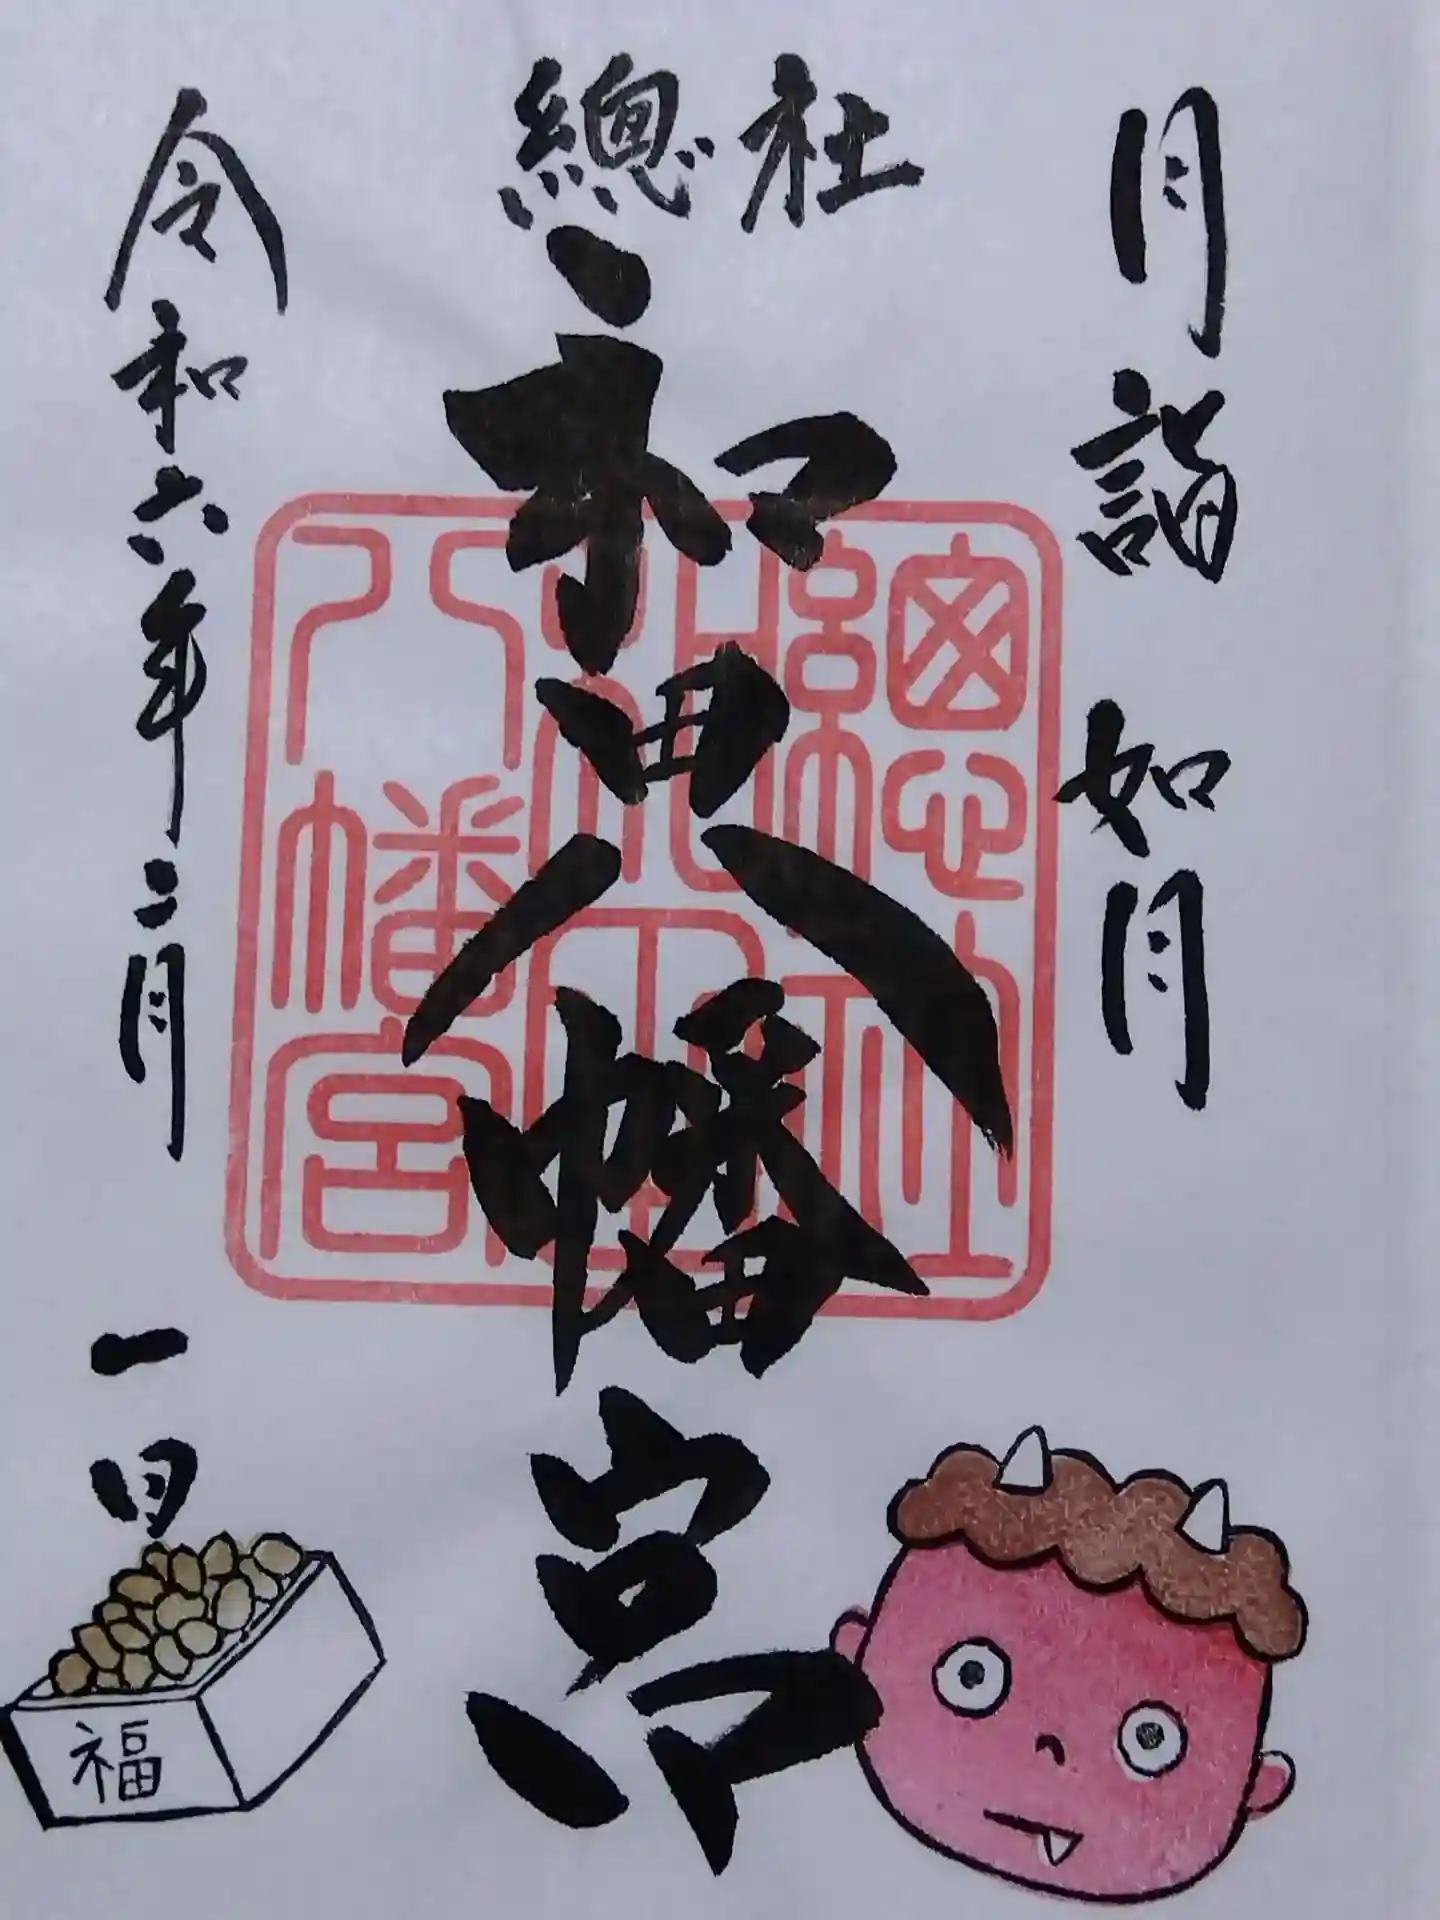 月詣 如月
總社
和田八幡宮
總社
和田
八幡宮
令和六年二月一日
福